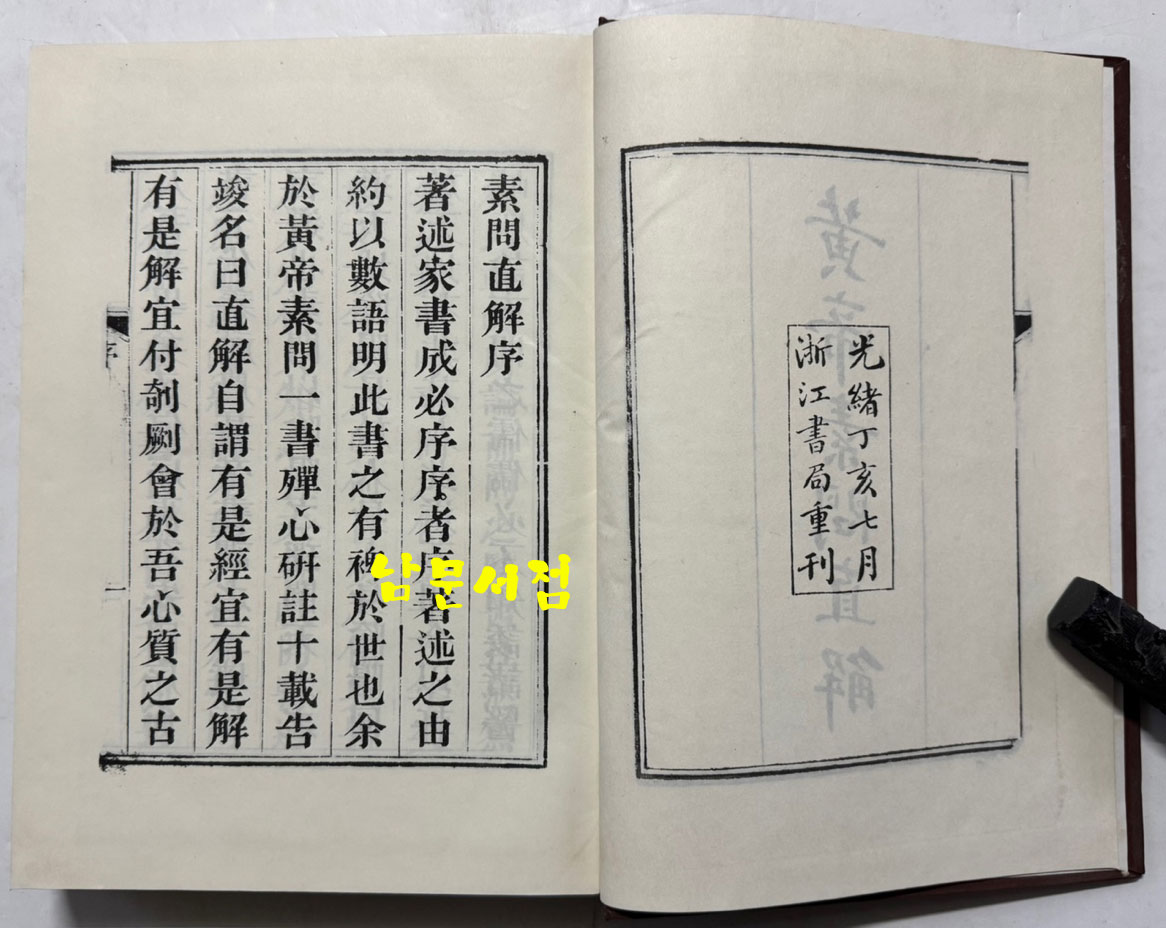 光緒丁亥七月
浙江書局重刊
素問直解序
著述家書成必序序者序著述之由
約以數語明此書之有裨於世也余
於黃帝素問一書殫心硏註十載告
竣名曰直解自謂有是經宜有是解
有是解宜付剞劂會於吾心質之古
序
一
남문서점